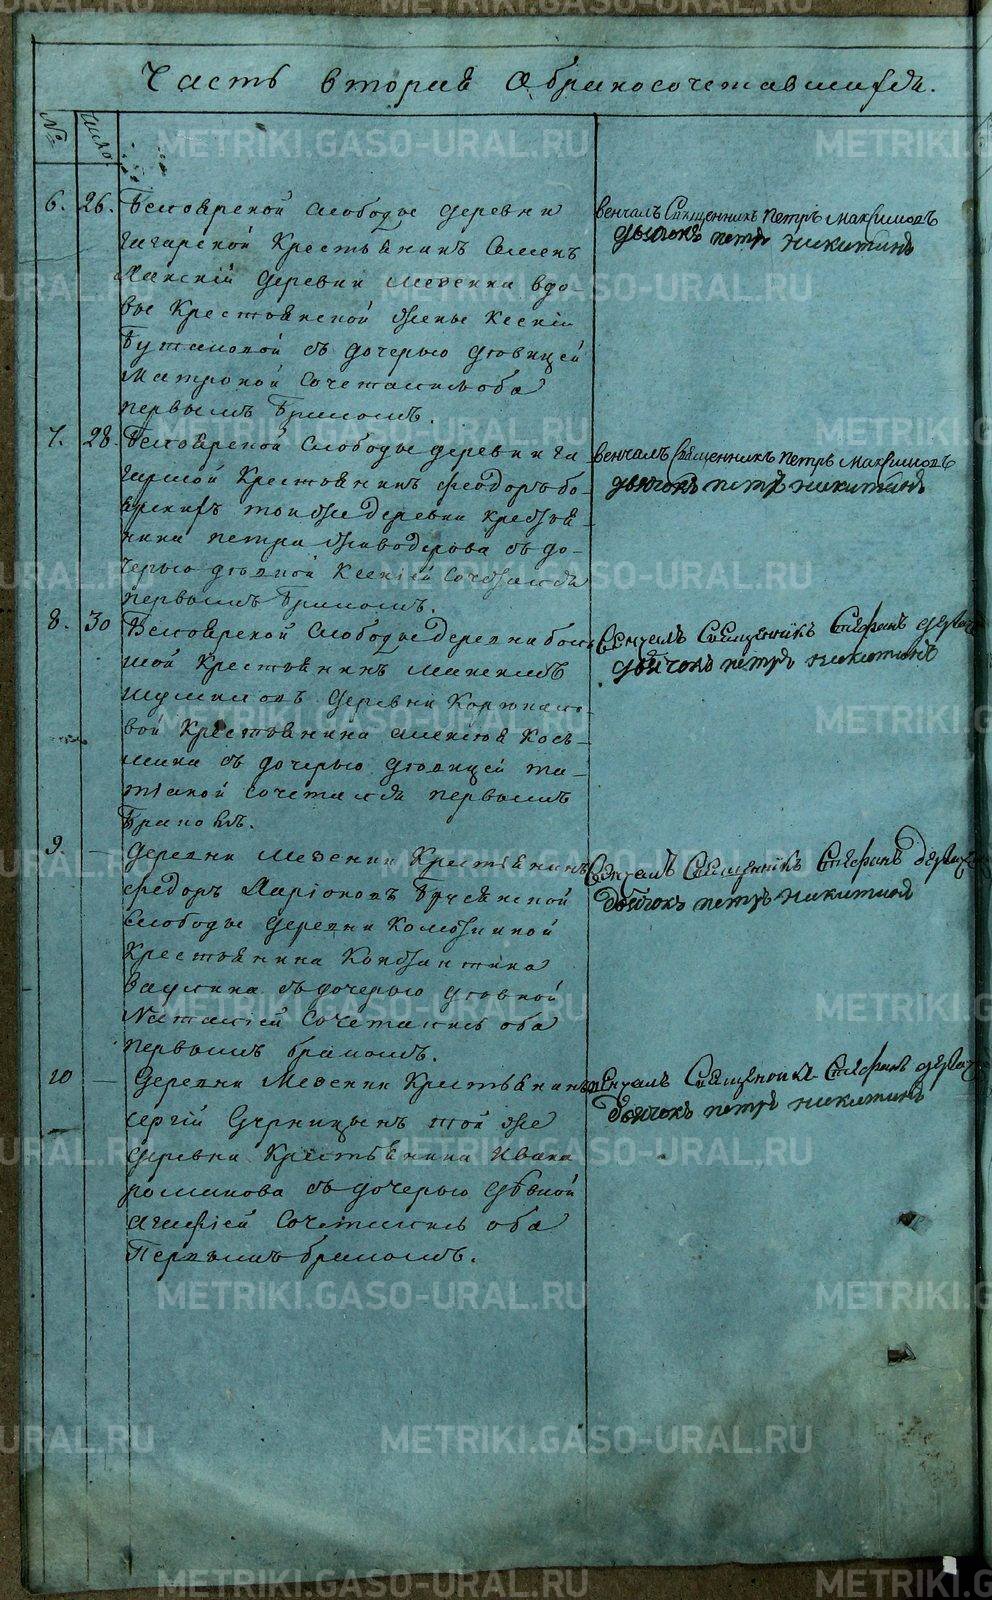 Часть вторая О бракосочетавшихся.
№ Число
6. 26. Белоярской слободы деревни
Гагарской Крестьянинъ Семенъ
деревни Мезенки вдо-
вы Крестьянской жены Ксенiи
Бутаковой съ дочерью девицей
Матроной Сочетались оба
первымъ бракомъ.
венчалъ Священникъ Петръ Максимовъ
дьячокъ петръ никитинъ
7. 28. Белоярской Слободы деревни Га-
гарской Крестьянинъ Феодоръ бо-
ярскихъ той же деревни Крестья-
нина петра Живодерова съ до-
черью девкой Ксенiей Сочетался
первымъ бракомъ.
венчалъ Священникъ петръ максимовъ
дьячокъ петръ никитинъ
8. 30 Белоярской Слободы деревни боль-
шой Крестьянинъ
деревни
вой Крестьянина Алексея Кось-
мина съ дочерью девицей та-
тiаной сочетался первымъ
бракомъ.
Венчалъ Священникъ Стефанъ
дьячокъ петръ никитинъ
9. — деревни Мезенки Крестьянинъ
Федоръ Ларiоновъ Брусянской
Слободы деревни
Крестьянина Констянтина
съ дочерью девкой
Наталiей Сочетались оба
первымъ бракомъ.
Венчалъ Священникъ Стефанъ
дьячокъ петръ никитинъ
10 — деревни Мезенки Крестьянинъ
Сергiй Черницынъ той же
деревни Крестьянина Ивана
романова съ дочерью девкой
Агафiей Сочетались оба
Первымъ бракомъ.
Венчалъ Священникъ Стефанъ
дьячокъ петръ никитинъ
METRIKI.GASO-URAL.RU